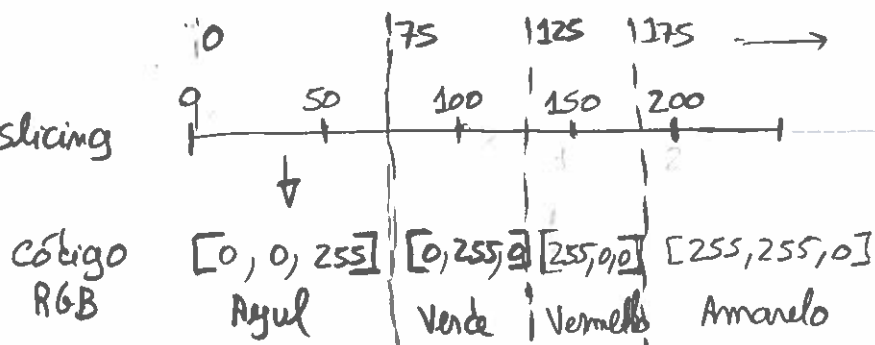 0 75 125 175
0 50 100 150 200
slicing
código [0, 0, 255] [0,255,0] [255,0,0] [255,255,0]
RGB Azul Verde Vermelho Amarelo